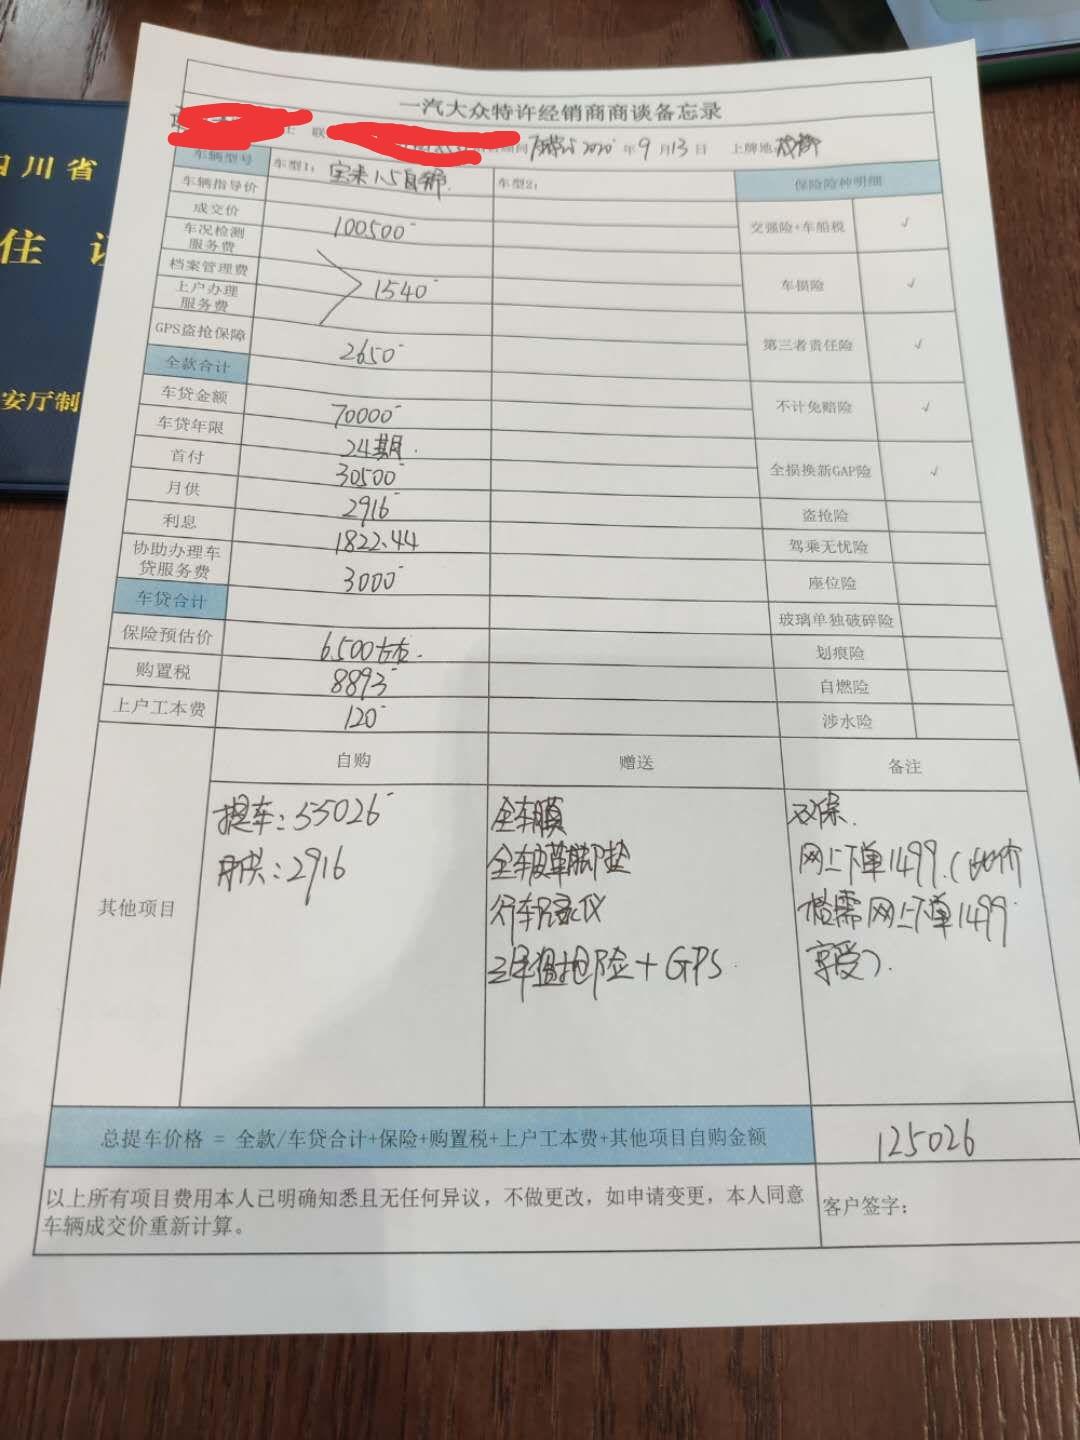 四川省
住
安厅制
一汽大众特许经销商商谈备忘录
士 联
2020年9月13日 上牌地 成都
车辆型号 车型1: 宝来1.5自舒. 车型2: 保险险种明细
车辆指导价
成交价 100500 交强险+车船税 ✓
车况检测服务费
档案管理费 1540 车损险 ✓
上户办理服务费
GPS盗抢保障 2650 第三者责任险 ✓
全款合计
车贷金额 70000 不计免赔险 ✓
车贷年限 24期.
首付 30500 全损换新GAP险 ✓
月供 2916 盗抢险
利息 1822.44 驾乘无忧险
协助办理车贷服务费 3000 座位险
车贷合计 玻璃单独破碎险
保险预估价 6500左右. 划痕险
购置税 8893 自燃险
上户工本费 120 涉水险
其他项目
自购
提车: 55026
月供: 2916
赠送
全车膜
全车皮革脚垫
行车记录仪
三年盗抢险+GPS
备注
双保.
网上下单1499.(此价
格需网上下单1499
享受).
总提车价格 = 全款/车贷合计+保险+购置税+上户工本费+其他项目自购金额 125026
以上所有项目费用本人已明确知悉且无任何异议，不做更改，如申请变更，本人同意
车辆成交价重新计算。
客户签字: